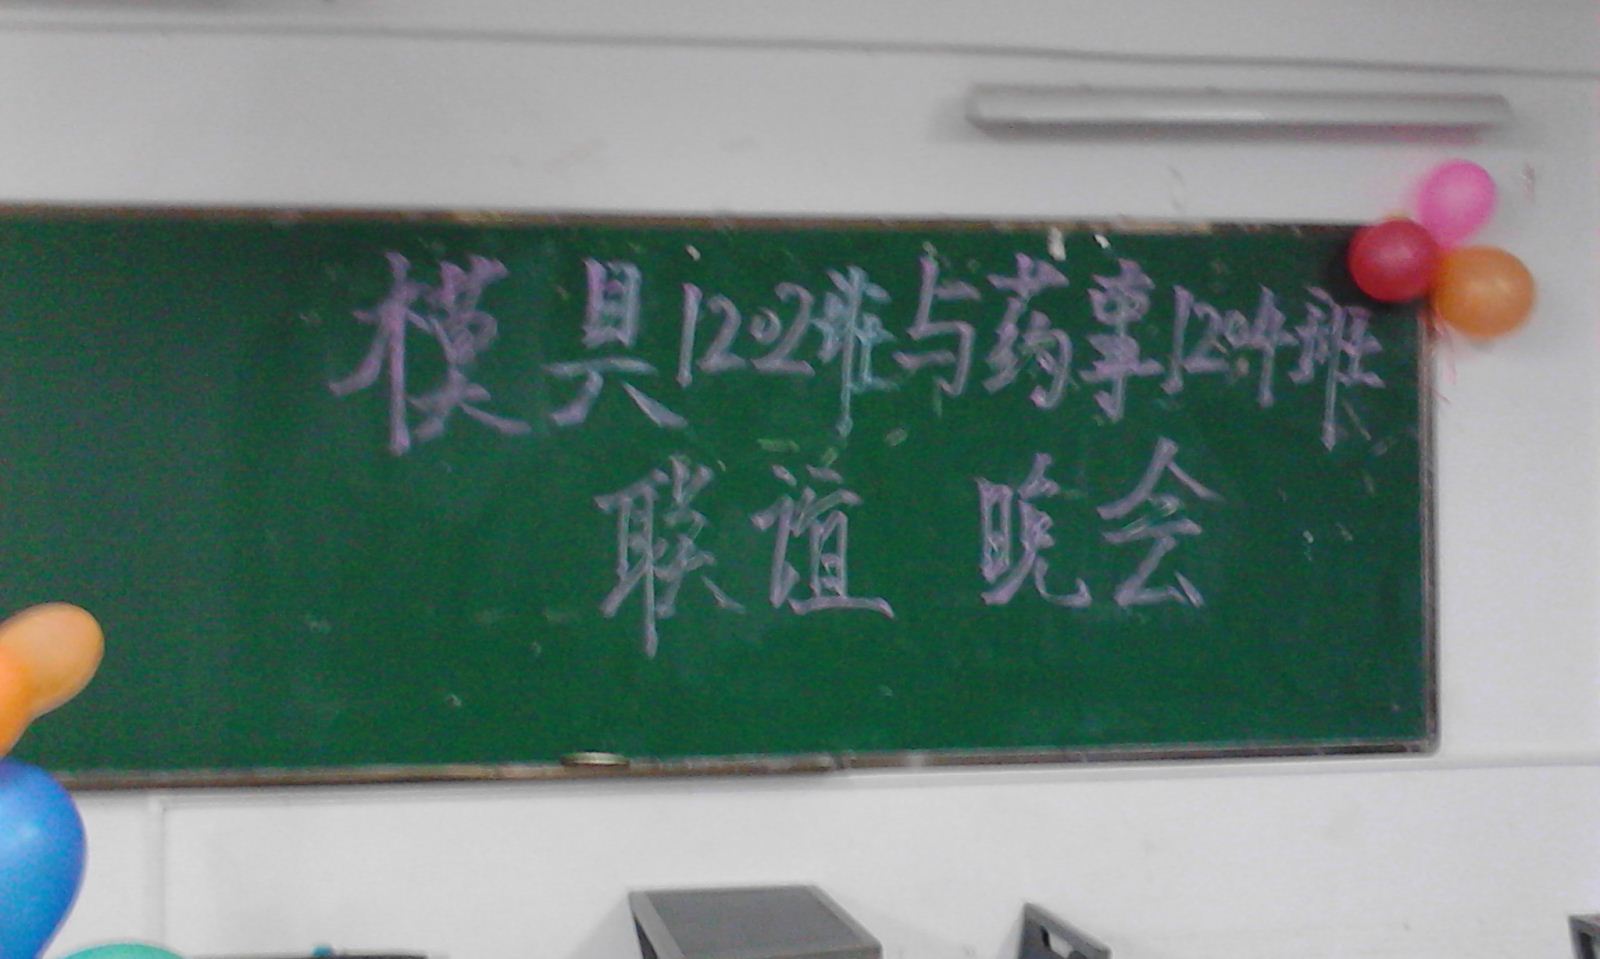 模具1202班与药事1204班
联谊 晚会